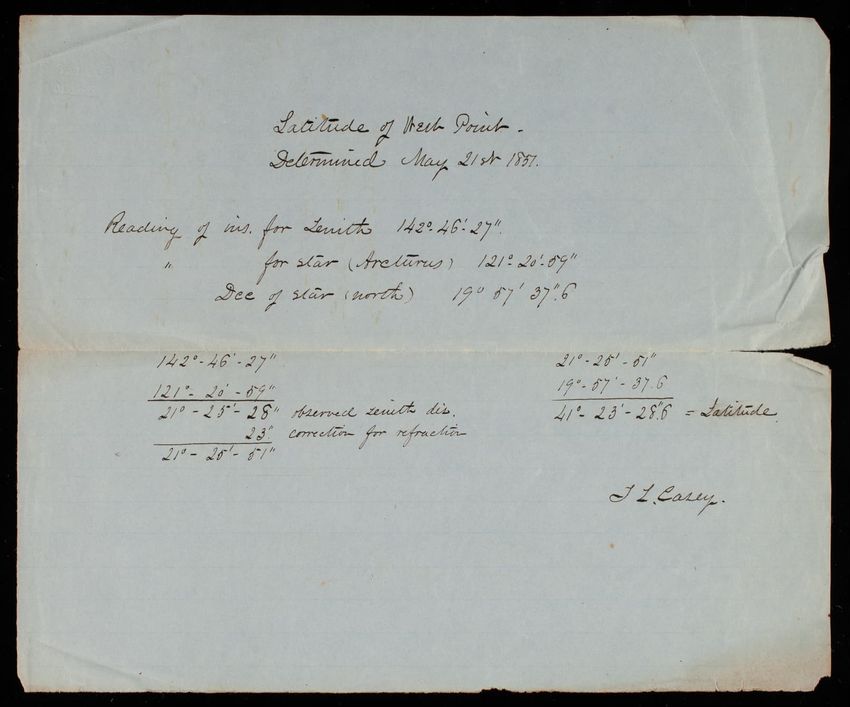 Latitude of West Point -
Determined May 21st 1851.
Reading of ins. for Zenith 142°-46'-27".
" for star (Arcturus) 121°-20'-59"
Dec of star (north) 19° 57' 37".6
142°-46'-27"
121°-20'-59"
21°-25'-28" observed zenith dis.
23". correction for refraction
21°-25'-51"
21°-25'-51"
19°-57'-37.6
41°-23'-28".6 = Latitude
T L. Casey.